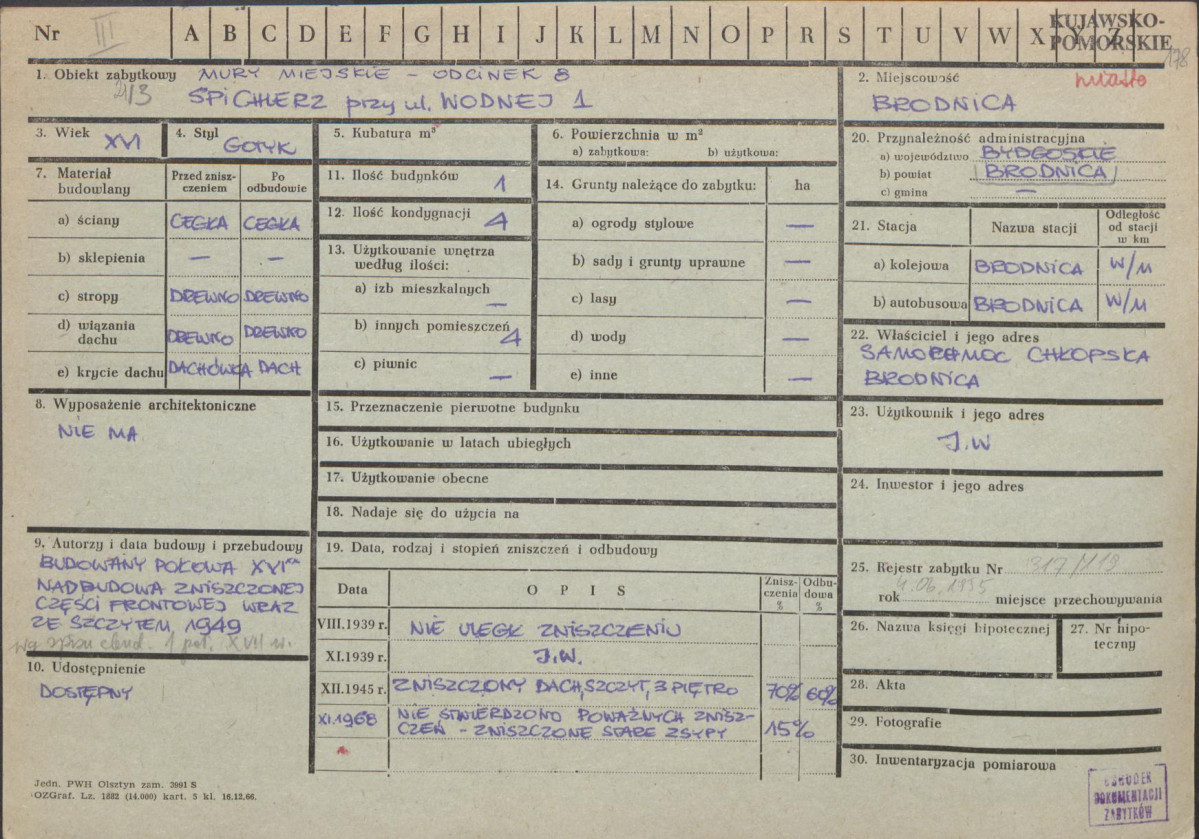 Nr III A B C D E F G H I J K L M N O P R S T U V W X Y Z
KUJAWSKO-
POMORSKIE
178
1. Obiekt zabytkowy MURY MIEJSKIE - ODCINEK 8
21/3 SPICHLERZ przy ul. WODNEJ 1
2. Miejscowość miasto
BRODNICA
3. Wiek XVI
4. Styl GOTYK
5. Kubatura m³
6. Powierzchnia w m²
a) zabytkowa: b) użytkowa:
7. Materiał budowlany
Przed znisz-
czeniem
Po
odbudowie
a) ściany CEGŁA CEGŁA
b) sklepienia — —
c) stropy DREWNO DREWNO
d) wiązania
dachu DREWNO DREWNO
e) krycie dachu DACHÓWKA DACH
8. Wyposażenie architektoniczne
NIE MA
9. Autorzy i data budowy i przebudowy
BUDOWANY POŁOWA XVI
NADBUDOWA ZNISZCZONEJ
CZĘŚCI FRONTOWEJ WRAZ
ZE SZCZYTEM, 1949
1 poł. XVII w.
10. Udostępnienie
DOSTĘPNY
11. Ilość budynków 1
12. Ilość kondygnacji 4
13. Użytkowanie wnętrza
według ilości:
a) izb mieszkalnych —
b) innych pomieszczeń 4
c) piwnic —
14. Grunty należące do zabytku: ha
a) ogrody stylowe —
b) sady i grunty uprawne —
c) lasy —
d) wody —
e) inne —
15. Przeznaczenie pierwotne budynku
16. Użytkowanie w latach ubiegłych
17. Użytkowanie obecne
18. Nadaje się do użycia na
19. Data, rodzaj i stopień zniszczeń i odbudowy
Data O P I S
Znisz-
czenia
%
Odbu-
dowa
%
VIII.1939 r. NIE ULEGŁ ZNISZCZENIU
XI.1939 r. J.W.
XII.1945 r. ZNISZCZONY DACH, SZCZYT, 3 PIĘTRO 70% 60%
XI.1968 NIE STWIERDZONO POWAŻNYCH ZNISZ-
CZEŃ - ZNISZCZONE STARE ZSYPY 15%
20. Przynależność administracyjna
a) województwo BYDGOSKIE
b) powiat BRODNICA
c) gmina —
21. Stacja Nazwa stacji
Odległość
od stacji
w km
a) kolejowa BRODNICA W/M
b) autobusowa BRODNICA W/M
22. Właściciel i jego adres
SAMOPOMOC CHŁOPSKA
BRODNICA
23. Użytkownik i jego adres
J.W
24. Inwestor i jego adres
25. Rejestr zabytku Nr 317/119
4.06.1935
rok miejsce przechowywania
26. Nazwa księgi hipotecznej
27. Nr hipo-
teczny
28. Akta
29. Fotografie
30. Inwentaryzacja pomiarowa
OŚRODEK
DOKUMENTACJI
ZABYTKÓW
Jedn. PWH Olsztyn zam. 3991 S
OZGraf. Lz. 1882 (14.000) kart. 5 kl. 16.12.66.